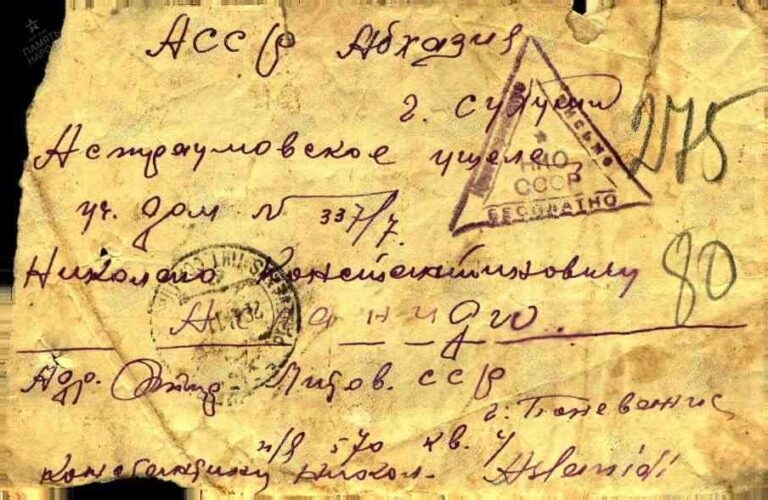 АССР Абхазия
г. Сухуми
275
Астраумовское ущелье
уч. дом № 337/7.
Николаю Константиновичу
80
Адр. Литов. ССР
г. Паневежис
п/я 570 кв. 4
Константину Никол. Aslanidi
ПИСЬМО
НКО
СССР
БЕСПЛАТНО
ПАМЯТЬ
НАРОДА